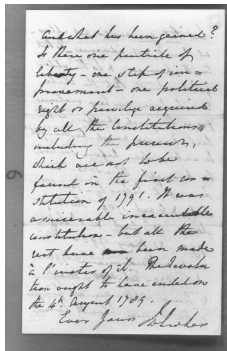 And what has been gained?
Is there one particle of
liberty - one step of im=
provement - one political
right or privilege acquired
by all the Constitutions,
including the present,
which are not to be
found in the first con=
stitution of 1791. It was
a miserable
constitution - but all the
rest have been made
à l'instar of it. The Revolu
tion ought to have ended on
the 4th August 1789.
Ever Yours
6